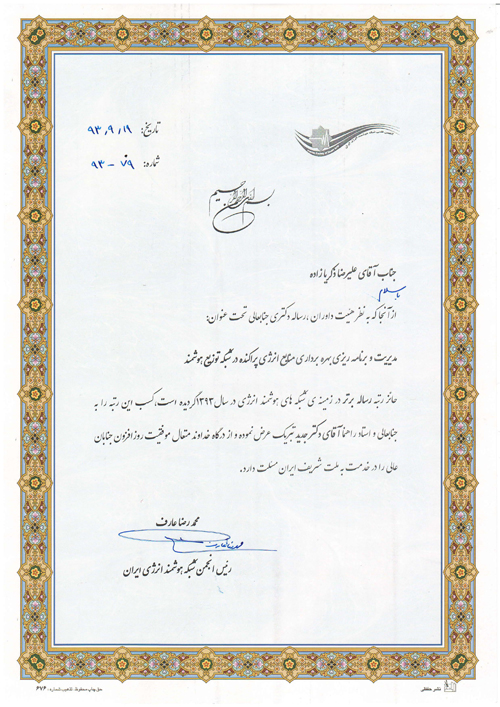 تاریخ: ۹۳٫۹٫۱۹
شماره: ۷۹-۹۳
بسم الله الرحمن الرحیم
جناب آقای علیرضا ذکریا زاده
با سلام
از آنجا که به نظر هیئت داوران ،رساله دکتری جنابعالی تحت عنوان:
مدیریت و برنامه ریزی بهره برداری منابع انرژی پراکنده در شبکه توزیع هوشمند
حائز رتبه رساله برتر در زمینه ی شبکه های هوشمند انرژی در سال ۱۳۹۳ گردیده است،کسب این رتبه را به
جنابعالی و استاد راهنما آقای دکتر جدید تبریک عرض نموده و از درگاه خداوند متعال موفقیت روزافزون جنابان
عالی را در خدمت به ملت شریف ایران مسئلت دارد.
محمد رضا عارف
رئیس انجمن شبکه هوشمند انرژی ایران
نشر حقیقی
حق چاپ محفوظ تذهیب شماره: ۶۷۶